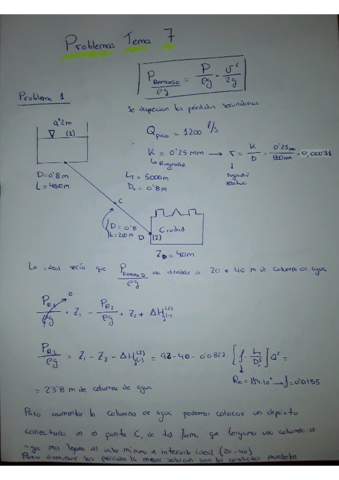 Problemas Tema 7
P_Remanso / ρg = P / ρg + v² / 2g
Problema 1
Se desprecian las pérdidas secundarias
Q pico = 1200 l/s
(1)
K = 0'25 mm → r = K / D = 0'25mm / 800mm = 0,00031
Rugosidad
Rugosidad relativa
D=0'8m
L_T = 5000m
D_T = 0'8m
C
D = 0'8
L=200m
D
(2)
Ciudad
Z_D = 40m
Lo ideal sería que P_Remanso / ρg 20 40 m de columna de agua
P_R1 / ρg + Z1 - P_R2 / ρg - Z2 + ΔH
0
P_R2 / ρg = Z1 - Z2 - ΔH = 92-40-0'0827 [f L / D⁵] Q² =
f=0'0155
= 23'8 m de columna de agua
Para aumentar la columna de agua podemos colocar un depósito
conectado en el punto C, de tal forma que tengamos una columna de
agua más al valor mínimo de intervalo ideal (20-40)
Para disminuir las pérdidas la mejor solución son las conductos paralelos